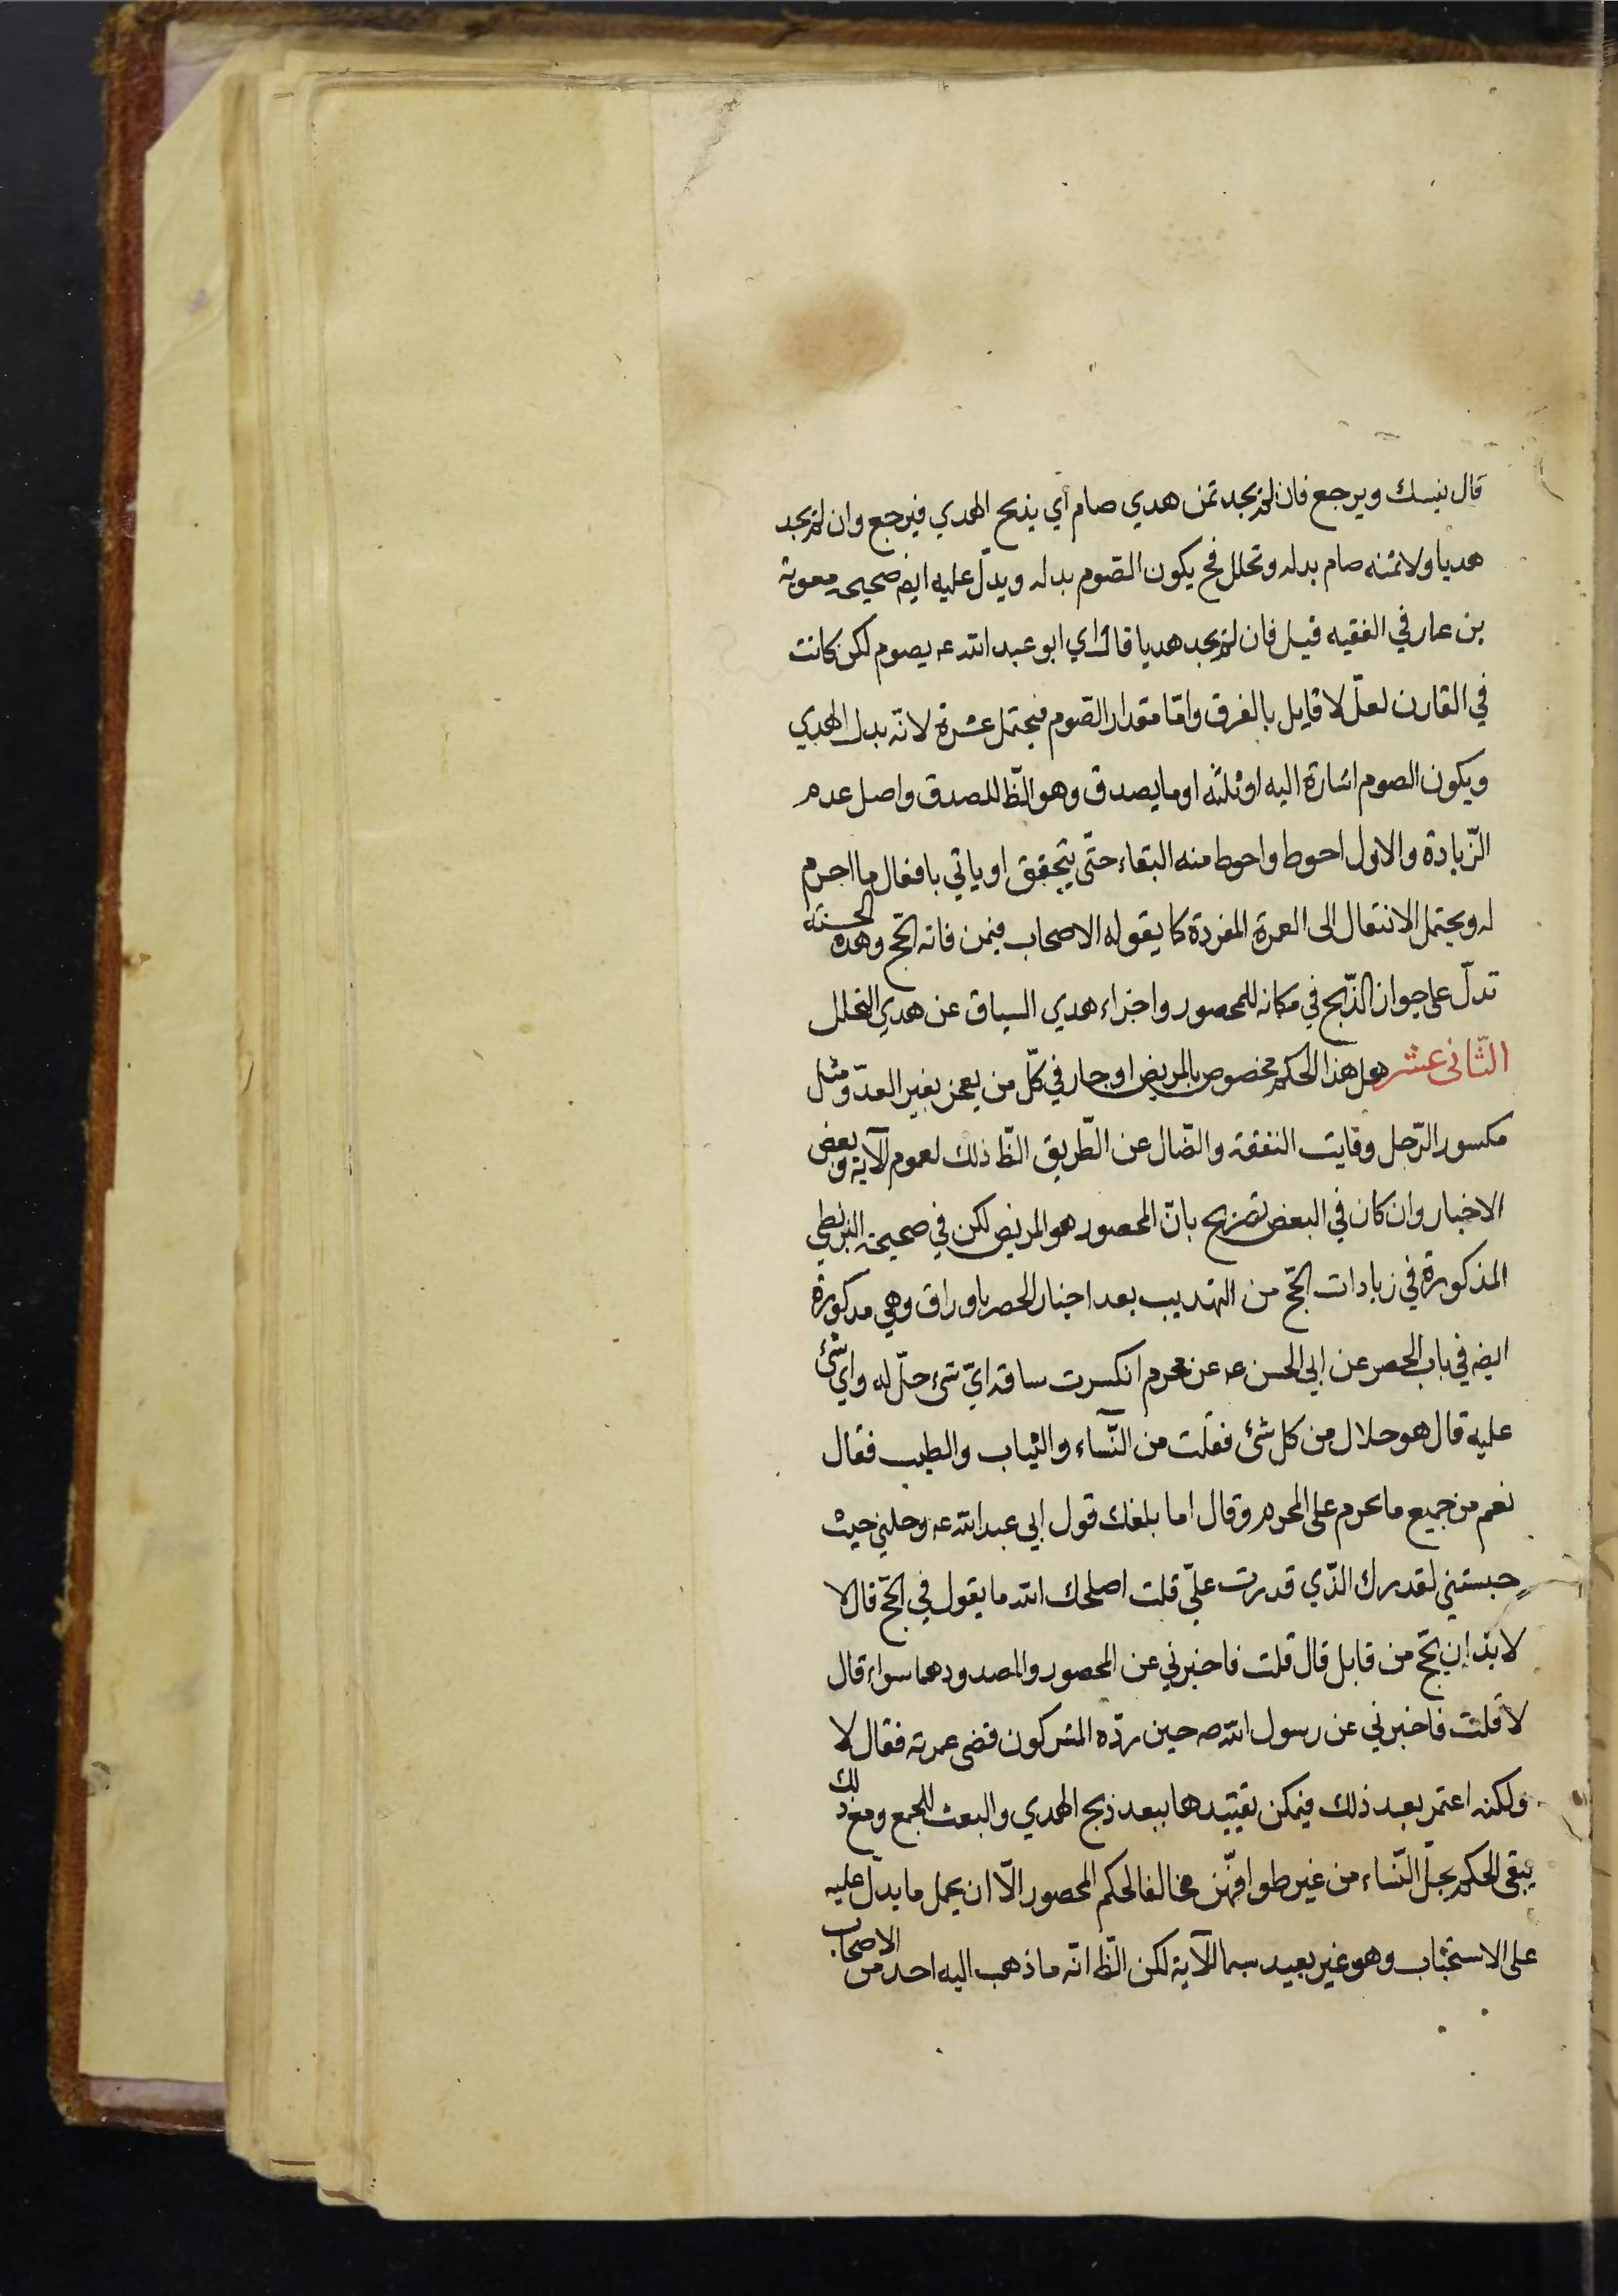 قال ينسك ويرجع فان لم يجد ثمن هدي صام أي يذبح الهدي فيرجع وان لم يجد
هديا ولا ثمنه صام بدله وتحلل فح يكون الصّوم بدله ويدلّ عليه ايضه صحيحه معوية
بن عمار في الفقيه قيل فان لم يجد هديا قال اي ابو عبد الله عه يصوم لكن كانت
في القارن لعلّ لا قايل بالفرق وامّا مقدار الصّوم فيحتمل عشرة لانّه بدل الهدي
ويكون الصوم اشارة اليه او ثلثة او ما يصدق وهو الظّ للصدق واصل عدم
الزّيادة والاول احوط واحوط منه البقاء حتّى يتحقق او ياتي بافعال ما احرم
له ويحتمل الانتقال الى العمرة المفردة كما يقوله الاصحاب فيمن فاته الحجّ وهذه الحسنة
تدلّ على جواز الذّبح في مكانه للمحصور واجزاء هدي السياق عن هدي التحلل
الثّانى عشر هل هذا الحكم مخصوص بالمريض او جار في كلّ من يعجز بغير العدّو مثل
مكسور الرّجل وفايت النفقة والضّال عن الطّريق الظّ ذلك لعموم الآية وبعض
الاخبار وان كان في البعض تصريح بانّ المحصور هو المريض لكن في صحيحة البزنطي
المذكورة في زيادات الحجّ من التهذيب بعد اخبار الحصر باوراق وهي مذكورة
ايضه في باب الحصر عن ابي الحسن عه عن محرم انكسرت ساقه ايّ شئ حلّ له واي شئ
عليه قال هو حلال من كل شئ فقلت من النّساء والثياب والطيب فقال
نعم من جميع ما يحرم على المحرم وقال اما بلغك قول ابي عبد الله عه وحلني حيث
حبستني لقدرك الذّي قدرت عليّ قلت اصلحك الله ما يقول في الحجّ قال لا
لا بدّ ان يحّج من قابل قال قلت فاخبرني عن المحصور والمصدود هما سواء قال
لا قلت فاخبرني عن رسول الله صه حين ردّه المشركون قضى عمرته فقال لا
ولكنه اعتمر بعد ذلك فيمكن تقييدها ببعد ذبح الهدي والبعث للجمع ومع ذلك
يبقى الحكم بحلّ النّساء من غير طوافهّن مخالفا لحكم المحصور الّا ان يحمل ما يدلّ عليه
على الاستحباب وهو غير بعيد سيما للآية لكن الظّ انّه ما ذهب اليه احد من الاصحاب